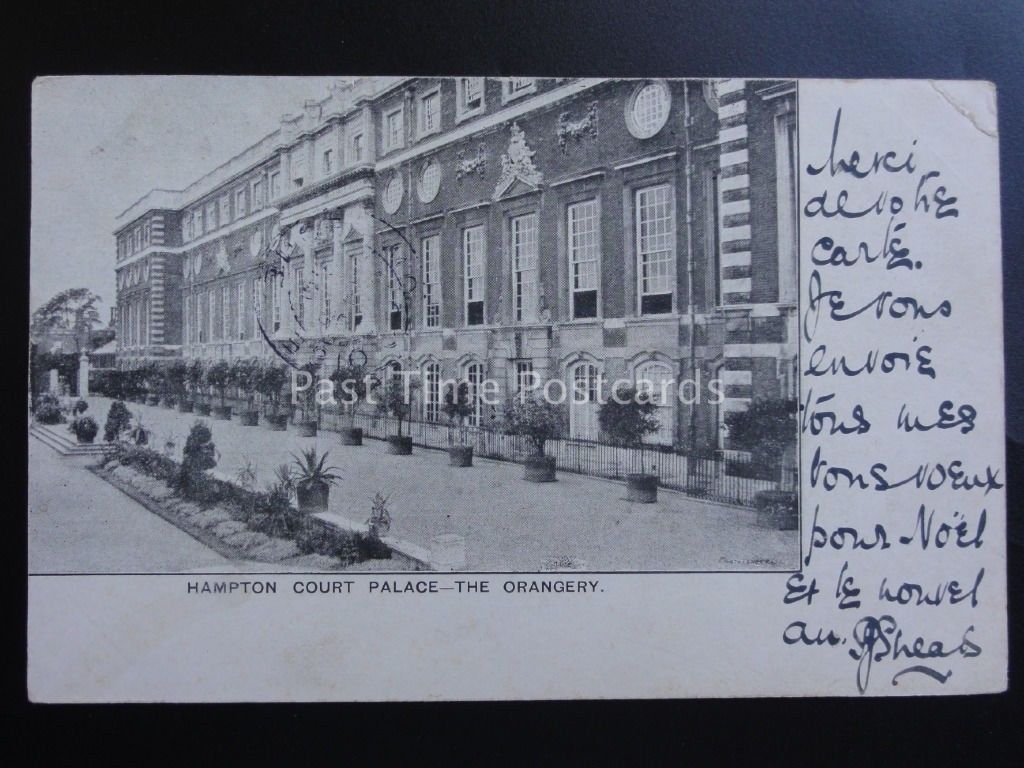 Merci
de votre
carte.
Je vous
envoie
tous mes
bons voeux
pour Noël
et le nouvel
an.
Past Time Postcards
HAMPTON COURT PALACE—THE ORANGERY.